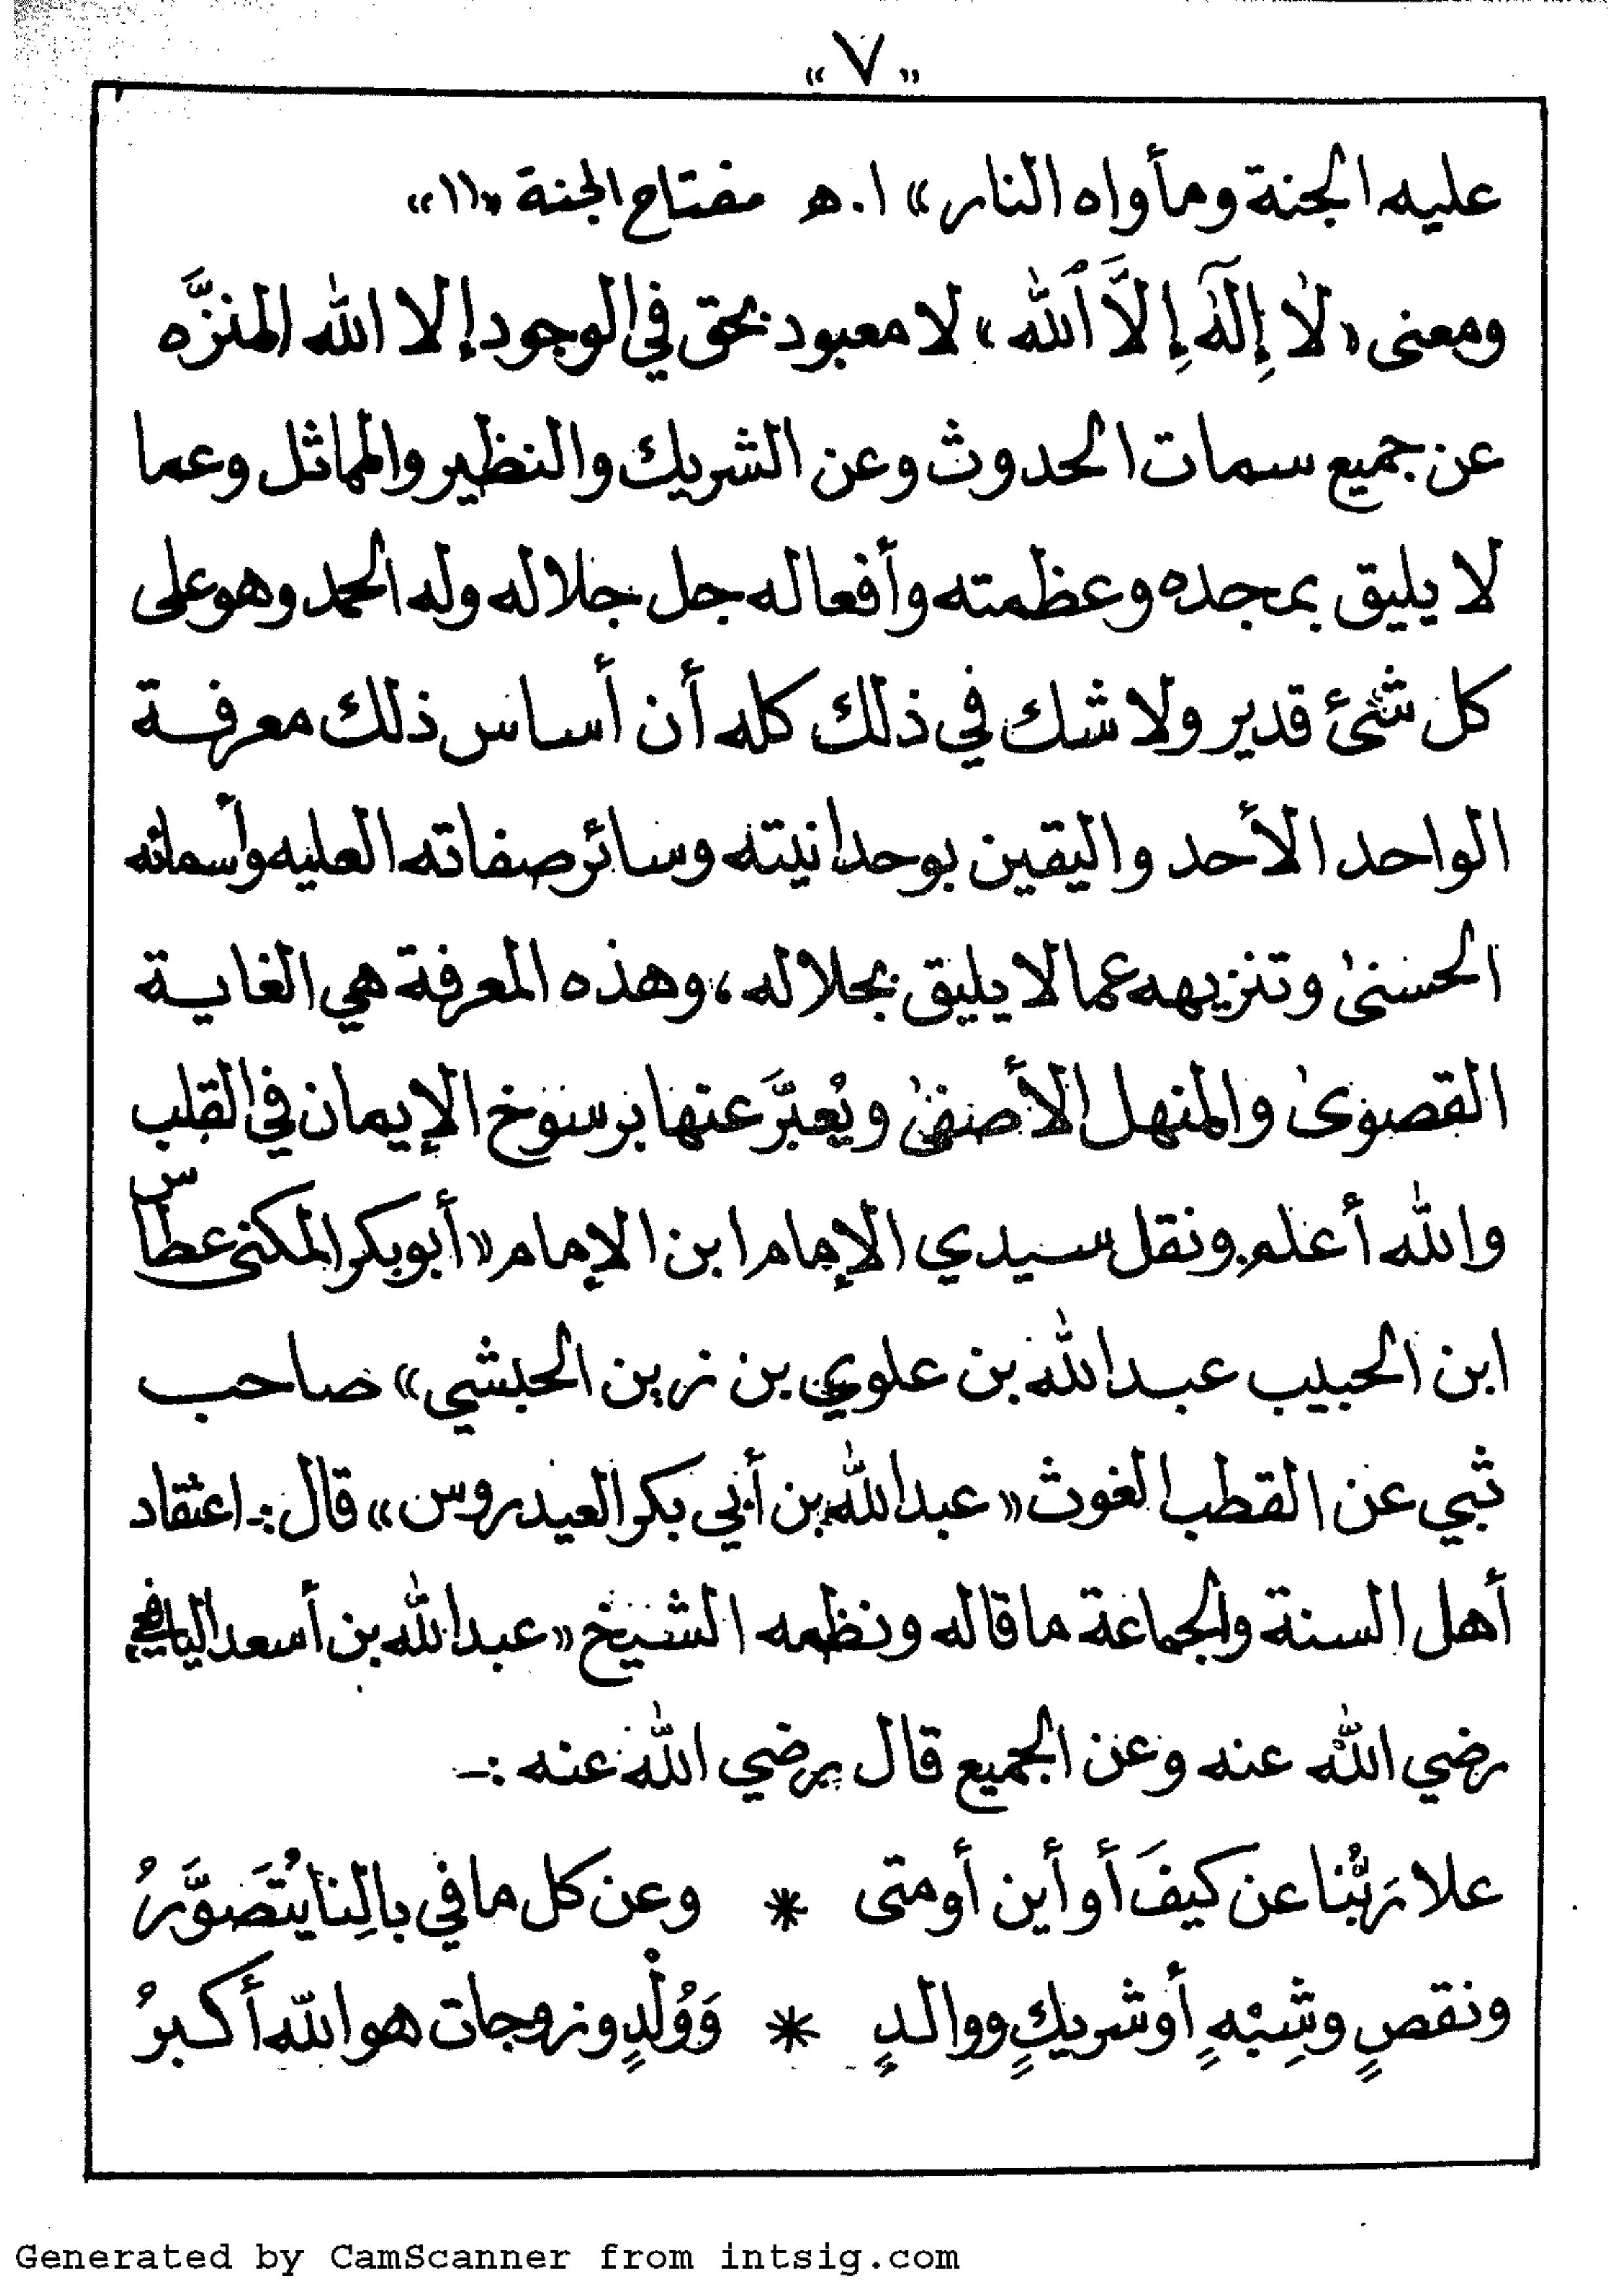 «٧»
عليه الجنة ومأواه النار» ا.ه مفتاح الجنة «١١»
ومعنى «لَا إِلَٰهَ إِلَّا ٱللَّه» لا معبود بحق في الوجود إلا الله المنزَّه
عن جميع سمات الحدوث وعن الشريك والنظير والمماثل وعما
لا يليق بمجده وعظمته وأفعاله جل جلاله وله الحمد وهو على
كل شئ قدير ولا شك في ذلك كله أن أساس ذلك معرفة
الواحد الأحد واليقين بوحدانيته وسائر صفاته العليه وأسمائه
الحسنىٰ وتنزيهه عما لا يليق بجلاله، وهذه المعرفة هي الغاية
القصوىٰ والمنهل الأصفىٰ ويُعبَّر عنها برسوخ الإيمان في القلب
والله أعلم. ونقل سيدي الإمام ابن الإمام «أبوبكر المكنى عطاس
ابن الحبيب عبدالله بن علوي بن زين الحبشي» صاحب
ثبي عن القطب الغوث «عبدالله بن أبي بكر العيدروس» قال:ـ اعتقاد
أهل السنة والجماعة ما قاله ونظمه الشيخ «عبدالله بن أسعد اليافعي»
رضي الله عنه وعن الجميع قال رضي الله عنه :ـ
علا رَبُّنا عن كيفَ أو أين أو متى * وعن كل ما في بالِنا يُتَصَوَّرُ
ونقصٍ وشِبْهٍ أو شريكٍ ووالدٍ * وَوُلْدٍ وزوجات هو الله أكبرُ
Generated by CamScanner from intsig.com